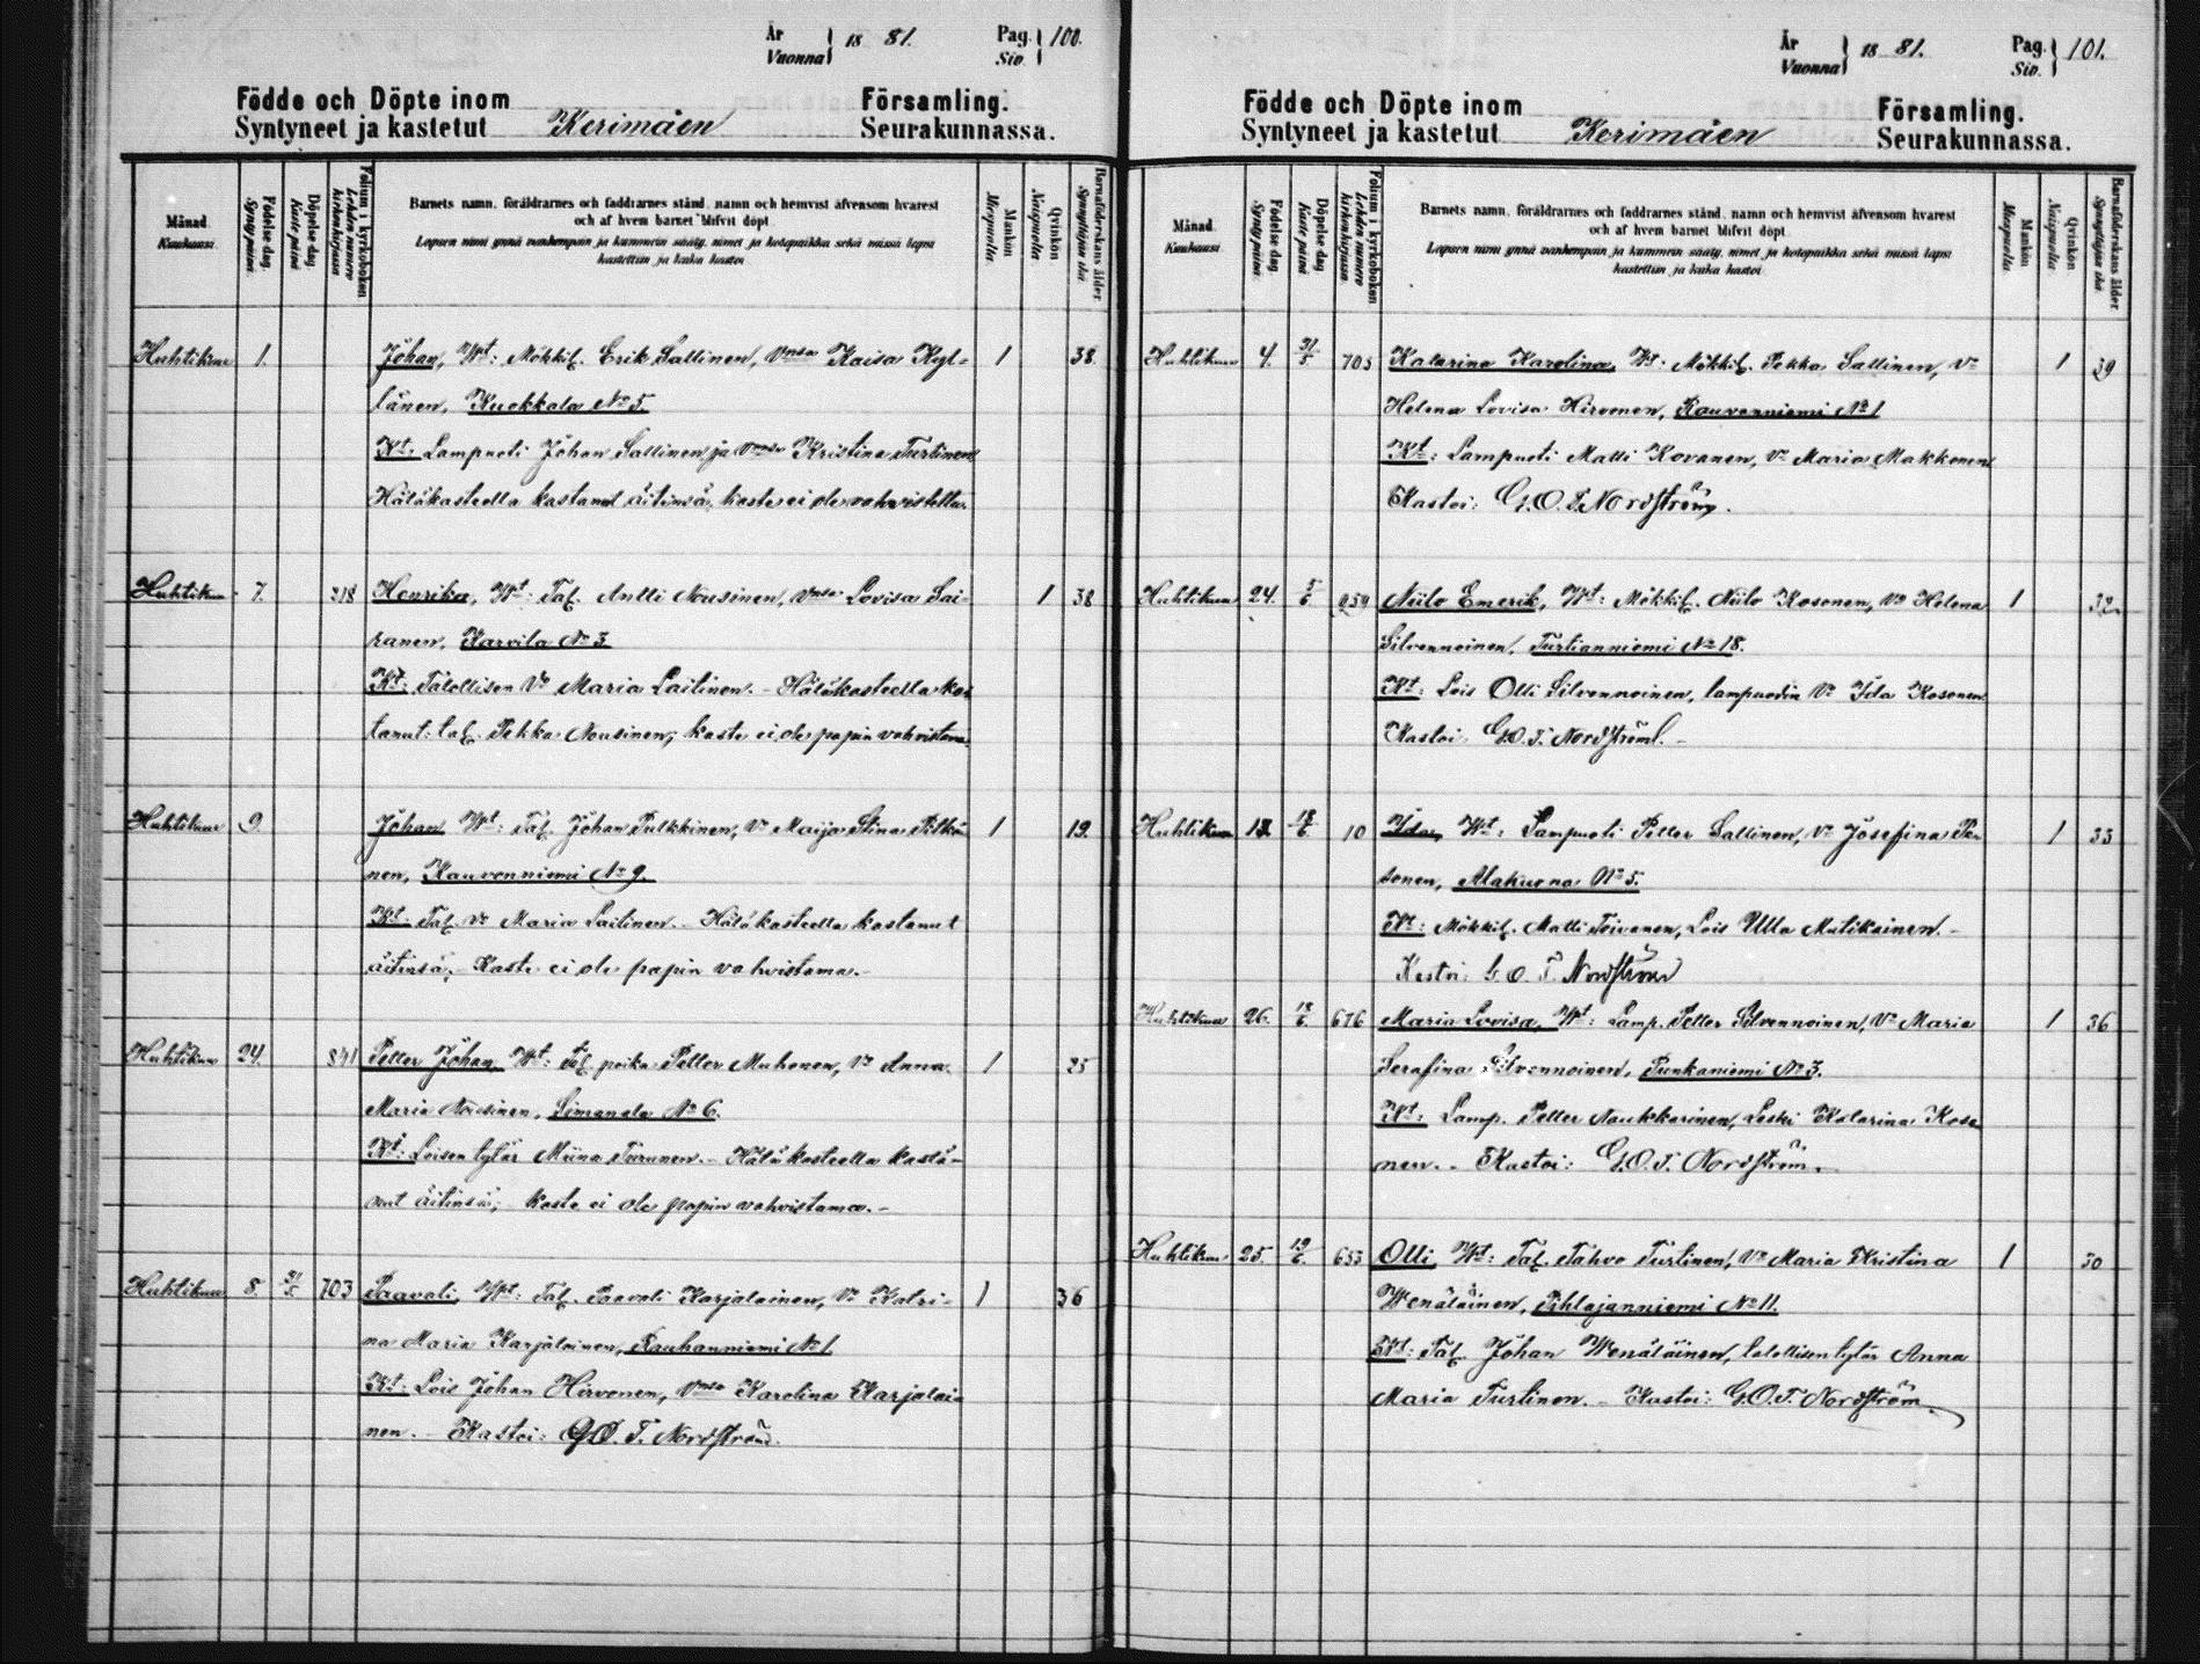 År
Vuonna } 18 81.
Pag.
Siv. } 100.
Födde och Döpte inom
Syntyneet ja kastetut Kerimäen
Församling.
Seurakunnassa.
Månad
Kuukausi.
Födelse dag.
Syntypäivä.
Döpelse dag
Kaste päivä
Folium i kyrkoboken
Lehden numero kirkonkirjassa
Barnets namn, föräldrarnes och faddrarnes stånd, namn och hemvist äfvensom hvarest
och af hvem barnet blifvit döpt
Lapsen nimi ynnä vanhempain ja kummein sääty, nimet ja kotopaikka sekä missä lapsi
kastettiin ja kuka kastoi
Mankön
Miespuolta.
Qvinkön
Naispuolta
Barnaföderskans ålder
Synnyttäjän ikä.
Huhtikuu 1. Johan, Wt: Mökkil. Erik Sallinen, Vmsa Kaisa Kyl= 1 38.
länen, Kuokkala No 5.
Kt: Lampuoti Johan Sallinen ja Vmsa Kristina Turtinen
Hätäkasteella kastanut äitinsä, kaste ei ole vahvistettu.
Huhtikuu 7. 218 Henrika, Wt: Tal. Antti Nousinen, Vmsa Lovisa Sai- 1 38
ranen, Karvila No 3.
Kt: Talollisen Vo Maria Laitinen. - Hätäkasteella kas
tanut: tal. Pekka Nousinen; kaste ei ole papin vahvistama.
Huhtikuu 9. Johan Wt: Tal. Johan Pulkkinen, Vo Maija Stina Pitkä 1 19.
nen, Rauvonniemi No 9.
Kt: Tal. Vo Maria Laitinen. - Hätäkasteella kastanut
äitinsä; Kaste ei ole papin vahvistama. -
Huhtikuu 24. 891 Petter Johan, Wt: Tal. poika Petter Muhonen, Vo Anna 1 25
Maria Nousinen, Simanala No 6.
Kt: Loisen tytär Miina Turunen. - Hätäkasteella kasta-
nut äitinsä; kaste ei ole papin vahvistama. -
Huhtikuu 8. 31/5 703 Paavali, Wt: Tal. Paavali Karjalainen, Vo Katri- 1 36
na Maria Karjalainen, Rauhanniemi No 1.
Kt: Lois Johan Hirvonen, Vmsa Karolina Karjalai
nen. - Kastoi: G.O.T. Nordström.
År
Vuonna } 18 81.
Pag.
Siv. } 101.
Födde och Döpte inom
Syntyneet ja kastetut Kerimäen
Församling.
Seurakunnassa.
Månad
Kuukausi.
Födelse dag
Syntypäivä.
Döpelse dag
Kaste päivä
Folium i kyrkoboken
Lehden numero kirkonkirjassa
Barnets namn, föräldrarnes och faddrarnes stånd, namn och hemvist äfvensom hvarest
och af hvem barnet blifvit döpt
Lapsen nimi ynnä vanhempain ja kummein sääty, nimet ja kotopaikka sekä missä lapsi
kastettiin ja kuka kastoi
Mankön
Miespuolta.
Qvinkön
Naispuolta
Barnaföderskans ålder
Synnyttäjän ikä.
Huhtikuu 4. 31/5 705 Katarina Karolina, Wt: Mökkil. Pekka Sallinen, Vo 1 39
Helena Lovisa Hirvonen, Rauvonniemi No 1
Kt: Lampuoti Matti Kovanen, Vo Maria Makkonen
Kastoi: G.O.T. Nordström.
Huhtikuu 24. 5/6 959 Niilo Emerik, Wt: Mökkil. Niilo Kosonen, Vo Helena 1 32.
Silvennoinen, Turtianniemi No 18.
Kt: Lois Olli Silvennoinen, lampuodin Vo Ida Kosonen
Kastoi: G.O.T. Nordström. -
Huhtikuu 18. 18/6 10 Ida, Wt: Lampuoti Petter Sallinen, Vo Josefina Pe- 1 33
sonen, Alakuona No 5.
Kt: Mökkil. Matti Toivanen, Lois Ulla Matikainen. -
Kastoi: G.O.T. Nordström
Huhtikuu 26. 18/6. 676 Maria Lovisa, Wt: Lamp. Petter Silvennoinen, Vo Maria 1 36
Serafina Silvennoinen, Punkaniemi No 3.
Kt: Lamp. Petter Naukkarinen, Leski Katarina Koso
nen. - Kastoi: G.O.T. Nordström.
Huhtikuu 25. 19/6. 653 Olli Wt: Tal. Tahvo Turtinen, Vo Maria Kristina 1 30
Wenäläinen, Pihlajanniemi No 11.
Kt: Tal. Johan Wenäläinen, talollisen tytär Anna
Maria Turtinen. - Kastoi: G.O.T. Nordström.